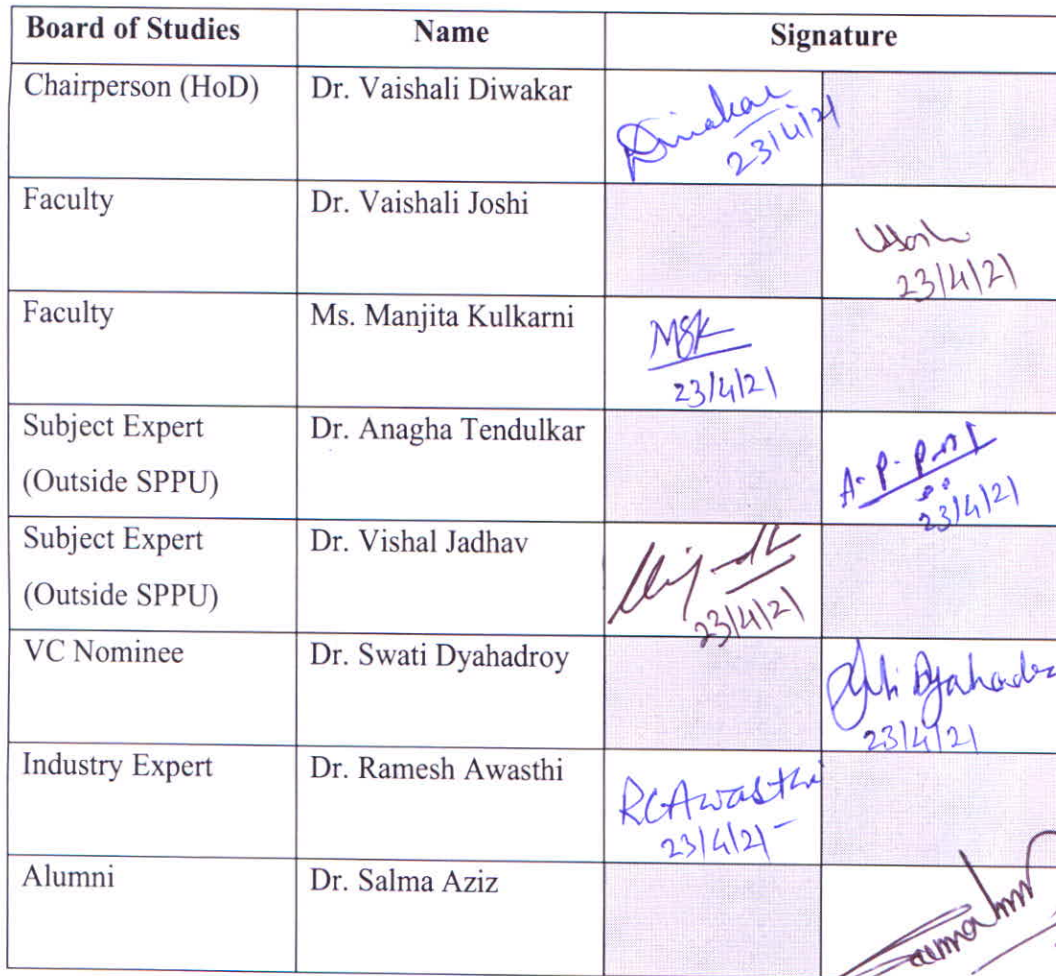 Board of Studies Name Signature
Chairperson (HoD) Dr. Vaishali Diwakar Diwakar
23/4/21
Faculty Dr. Vaishali Joshi
23/4/21
Faculty Ms. Manjita Kulkarni MSK
23/4/21
Subject Expert Dr. Anagha Tendulkar
(Outside SPPU)
23/4/21
Subject Expert Dr. Vishal Jadhav
(Outside SPPU)
23/4/21
VC Nominee Dr. Swati Dyahadroy
23/4/21
Industry Expert Dr. Ramesh Awasthi RCAwasthi
23/4/21
Alumni Dr. Salma Aziz